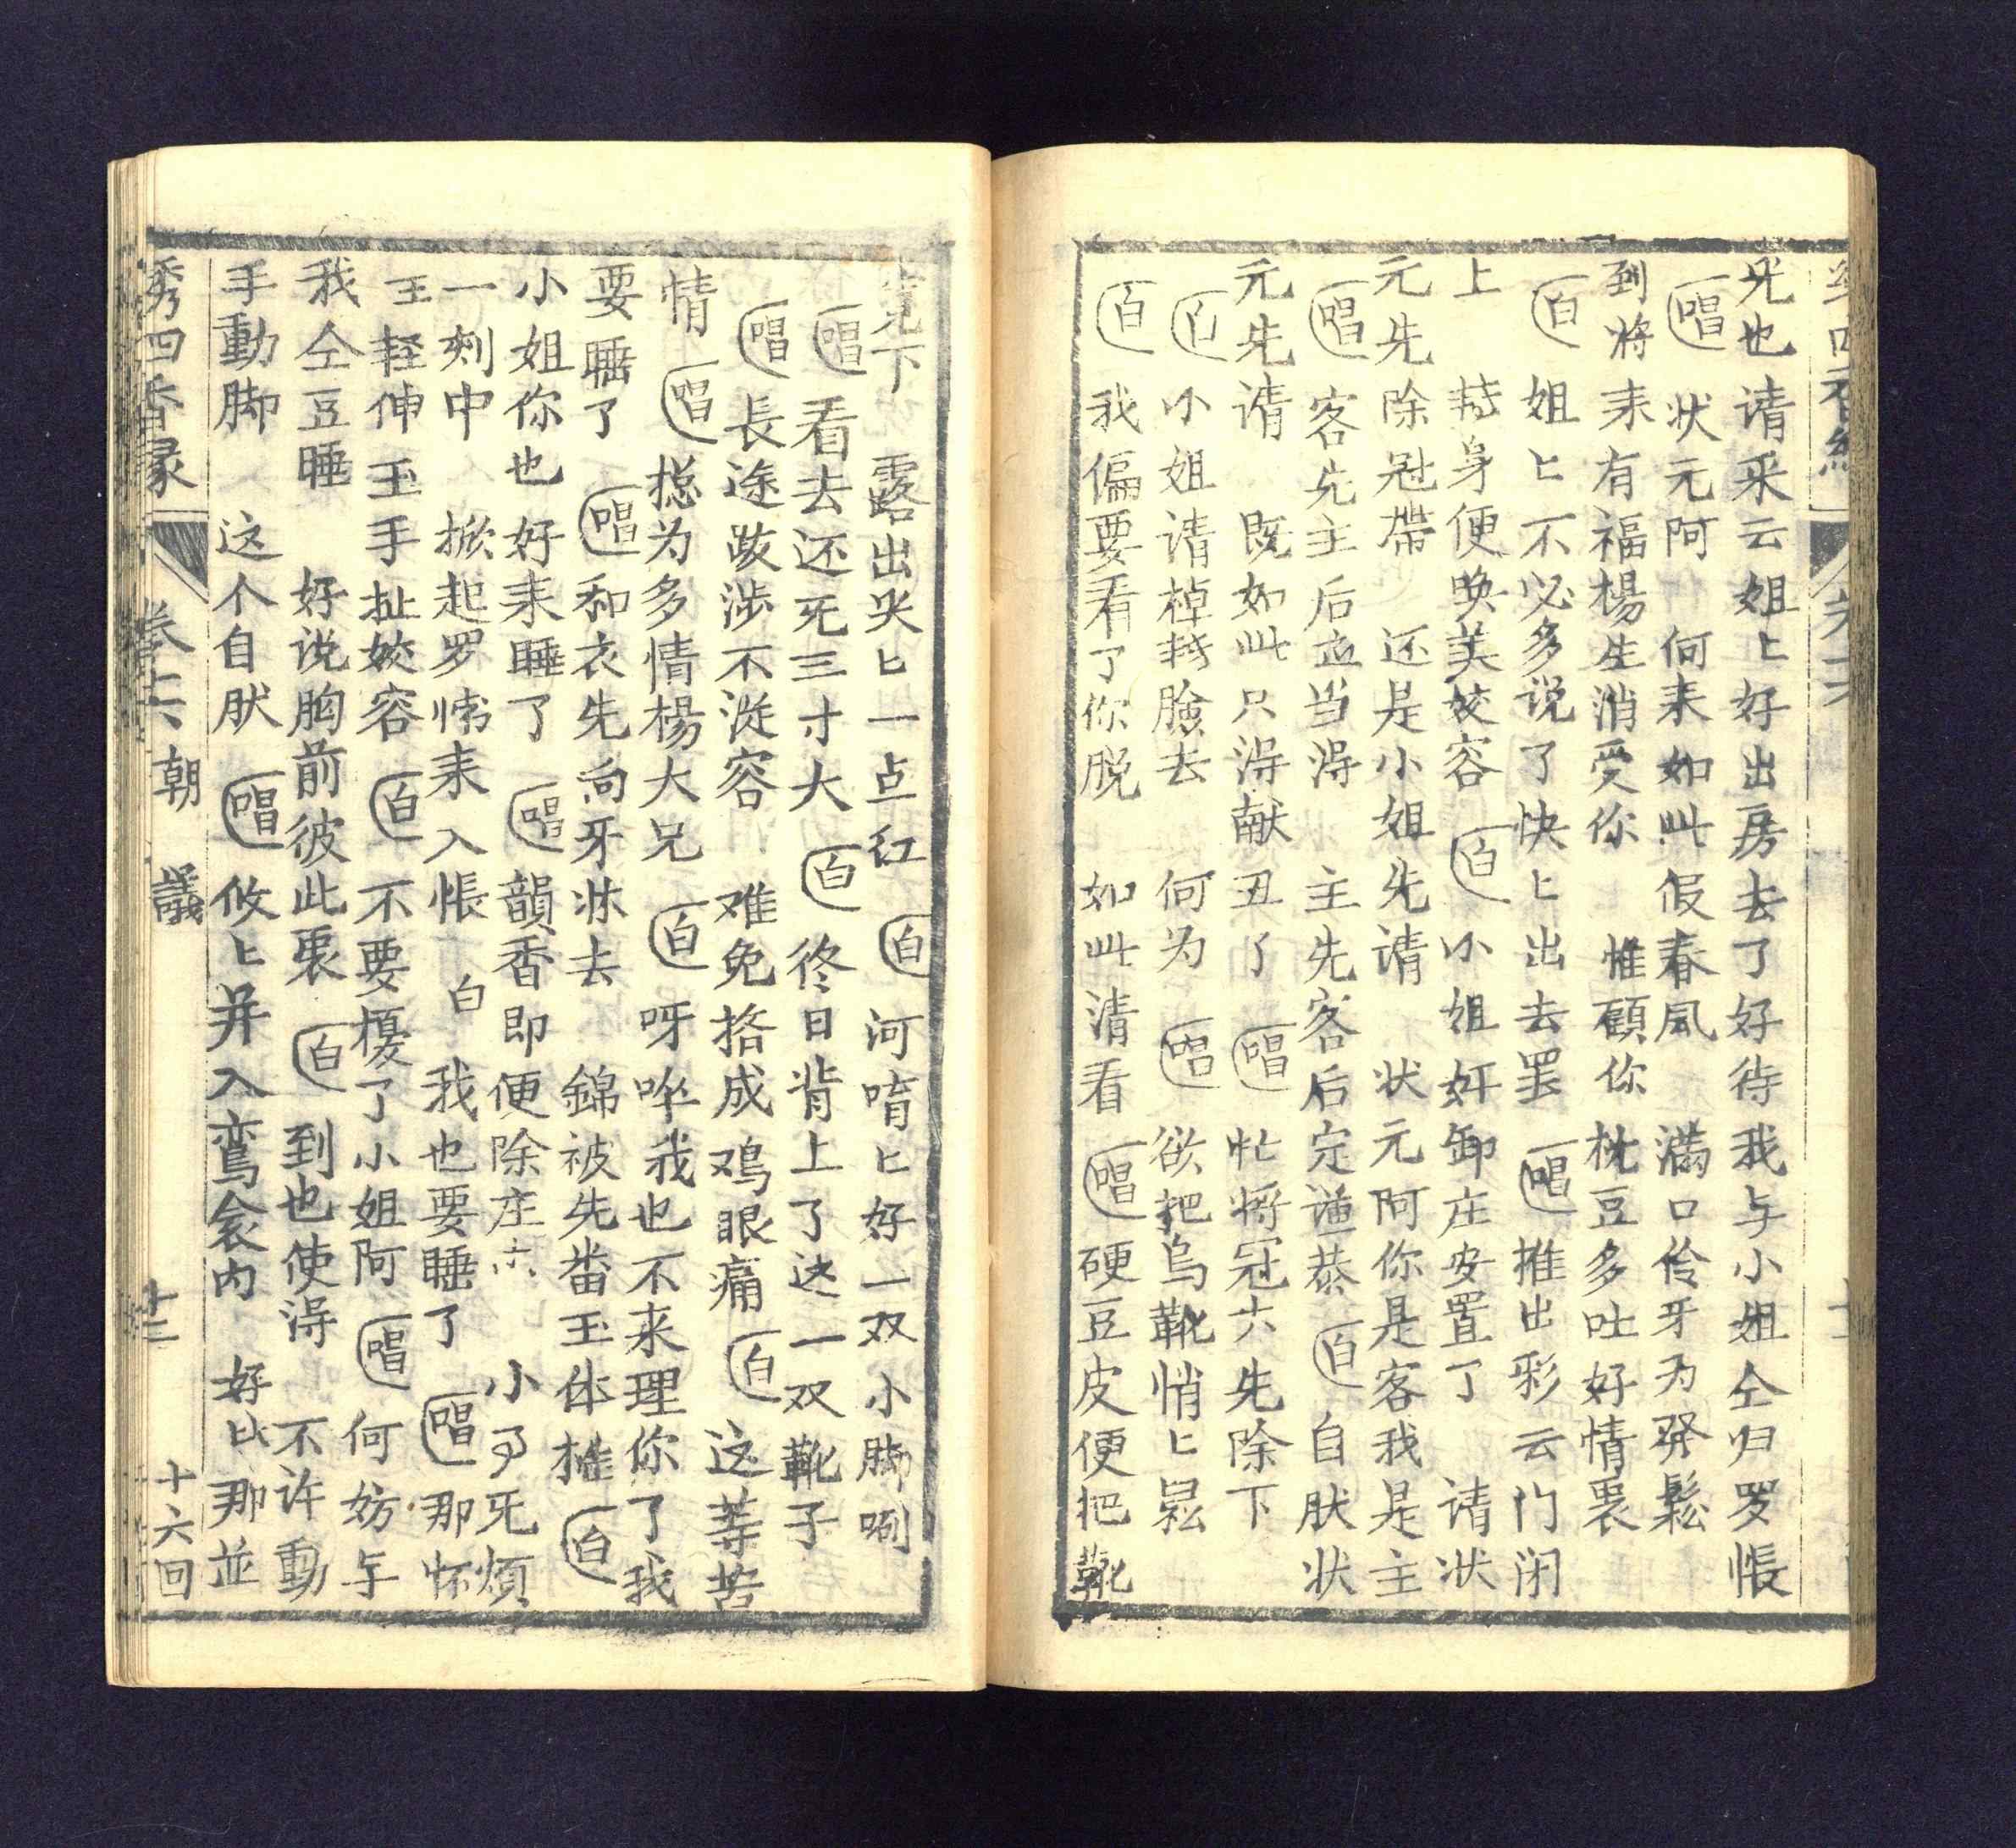 光也 请釆云姐匕好出房去了好待我与小姐仝归罗帳
唱 状元阿 何耒如此假春風 满口伶牙为發鬆
到將耒有福楊生消受你 惟顧你 枕豆多吐好情裹
白 姐匕不必多说了快匕出去罢 唱 推出彩云门闭
上 轉身便唤美姣容 白 小姐奸卸庄安置了 请状
元先除冠帶 还是小姐先请 状元阿你是客我是主
唱 客先主后立当淂 主先客后定谨恭 白 自肰状
元先请 既如此只淂献丑了 唱 忙将冠六先除下
白 小姐请棹轉臉去 何为 唱 欲把烏靴悄匕鬆
白 我偏要看了你脱 如此清看 唱 硬豆皮便把靴
下 露出尖匕一点红 白 河唷匕好一双小脚咧
唱 看去还死三寸大 白 终日背上了这一双靴子
唱 長途跋涉不従容 难免挌成鳮眼痛 白 这䓁苦
情 唱 揔为多情楊大兄 白 呀啐我也不来理你了我
要睡了 唱 和衣先向牙牀去 錦被先畨玉体推 白
小姐你也好耒睡了 唱 韻香即便除庄六 小了死煩
一刻中 掀起罗帏耒入帳 白 我也要睡了 唱 那怀
王軽伸玉手扯姣容 白 不要擾了小姐阿 唱 何妨与
我仝豆睡 好说胸前彼此裹 白 到也使淂 不许動
手動脚 这个自肰 唱 攸匕并入鸾衾内 好比那並
绣四香緣 卷六 朝議 十二 十六回